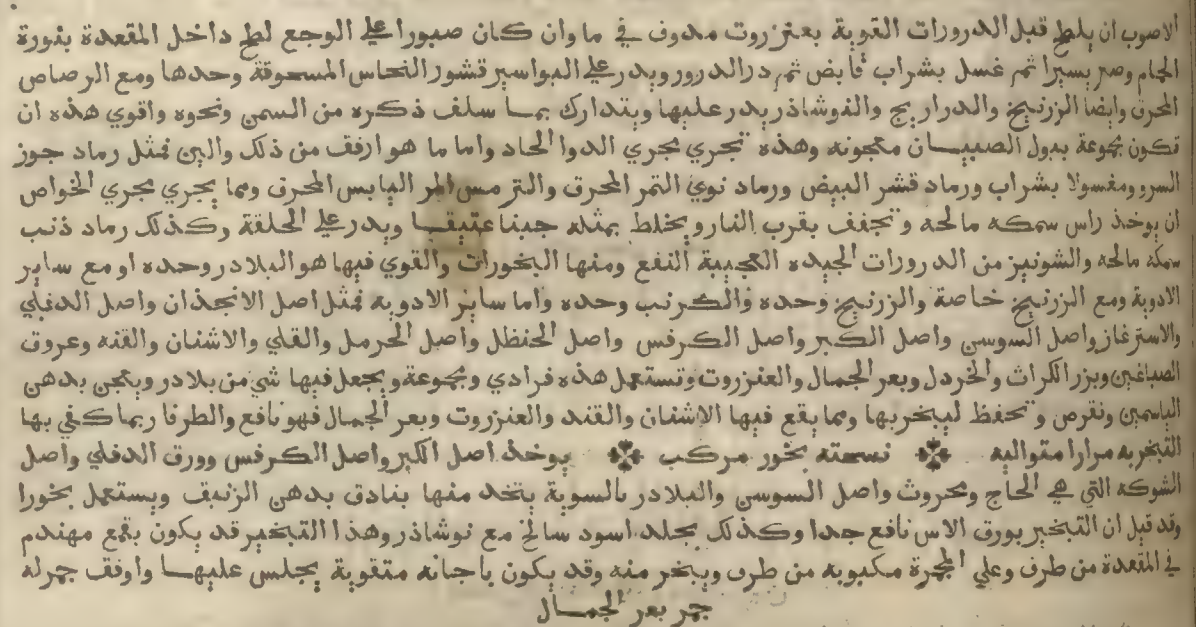 الاصوب ان يلطخ قبل الدرورات القوية بعنزروت مدوف في ما وان كان صبورا علي الوجع لطخ داخل المقعدة بنورة
الحمام وصبر يسيرا ثم غسل بشراب قابض ثم در الدرور ويدر علي البواسير قشور النحاس المسحوقة وحدها ومع الرصاص
المحرق وايضا الزرنيخ والدراريج والنوشاذر يدر عليها ويتدارك بما سلف ذكره من السمن ونحوه واقوي هذه ان
تكون مجموعة ببول الصبيان معجونه وهذه تجري مجري الدوا الحاد واما ما هو ارفق من ذلك والين فمثل رماد جوز
السرو ومغسولا بشراب ورماد قشر البيض ورماد نوي التمر المحرق والترمس المر اليابس المحرق ومما يجري مجري الخواص
ان يوخذ راس سمكه مالحه وتجفف بقرب النار ويخلط بمثله جبنا عتيقا ويدر علي الحلقة وكذلك رماد ذنب
سمكه مالحه والشونيز من الدرورات الجيده العجيبة النفع ومنها البخورات والقوي فيها هو البلادر وحده او مع ساير
الادوية ومع الزرنيخ خاصة والزرنيخ وحده والكرنب وحده واما ساير الادويه فمثل اصل الانجذان واصل الدفلي
والاسترغاز واصل السوسن واصل الكبر واصل الكرفس واصل الحنظل واصل الحرمل والقلي والاشنان والقنه وعروق
الصباغين وبزر الكراث والخردل وبعر الجمال والعنزروت وتستعمل هذه فرادي ومجموعة ويجعل فيها شي من بلادر ويعجن بدهن
الياسمين وتقرص وتحفظ ليبخر بها ومما يقع فيها الاشنان والقند والعنزروت وبعر الجمال فهو نافع والطرفا ربما كفي بها
التبخر به مرارا متواليه نسخته بخور مركب يوخذ اصل الكبر واصل الكرفس وورق الدفلي واصل
الشوكه التي هي الحاج ومحروث واصل السوسن والبلادر بالسوية يتخذ منها بنادق بدهن الزنبق ويستعمل بخورا
وقد قيل ان التبخير بورق الاس نافع جدا وكذلك بجلد اسود سالخ مع نوشاذر وهذا التبخير قد يكون بقمع مهندم
في المقعدة من طرف وعلي المجمرة مكبوبه من طرف ويبخر منه وقد يكون باجانه مثقوبة يجلس عليها واوفق جمر له
جمر بعر الجمال